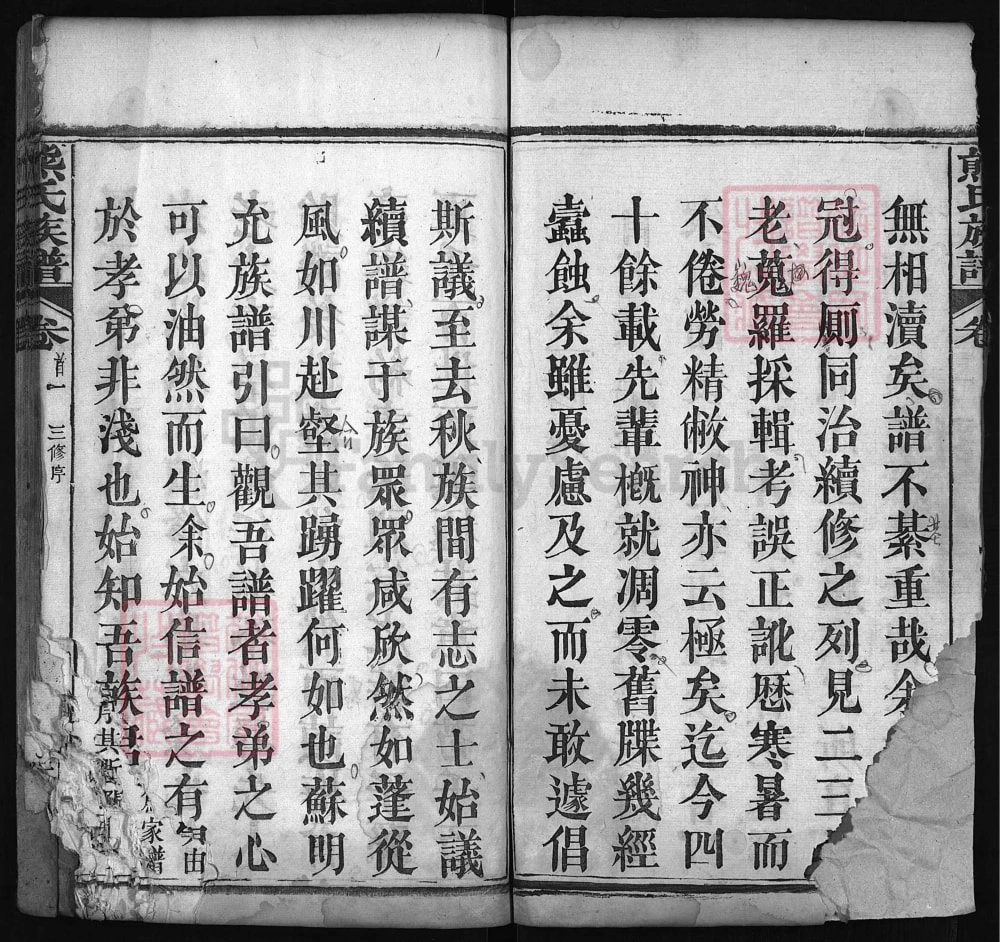 無相瀆矣譜不綦重哉余
冠得厠同治續修之列見二三
老蒐羅採輯考誤正訛歴寒暑而
不倦勞精敝神亦云極矣迄今四
十餘載先輩概就凋零舊牒幾經
蠹蝕余雖憂慮及之而未敢遽倡
斯議至去秋族間有志之士始議
續譜謀于族眾眾咸欣然如蓬從
風如川赴壑其踴躍何如也蘇明
允族譜引曰觀吾譜者孝弟之心
可以油然而生余始信譜之有
於孝弟非淺也始知吾族
熊氏族譜
卷
首一
三修序
家譜
由
熊氏族譜
卷
FamilySearch